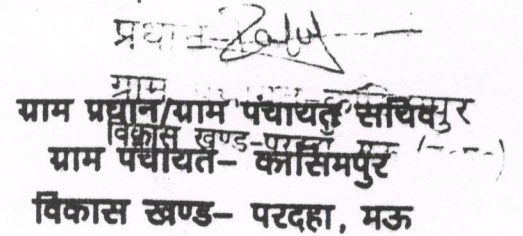 प्रधान
ग्राम
ग्राम प्रधान/ग्राम पंचायत सचिव
विकास खण्ड-परदहा मऊ
ग्राम पंचायत– कासिमपुर
विकास खण्ड– परदहा, मऊ